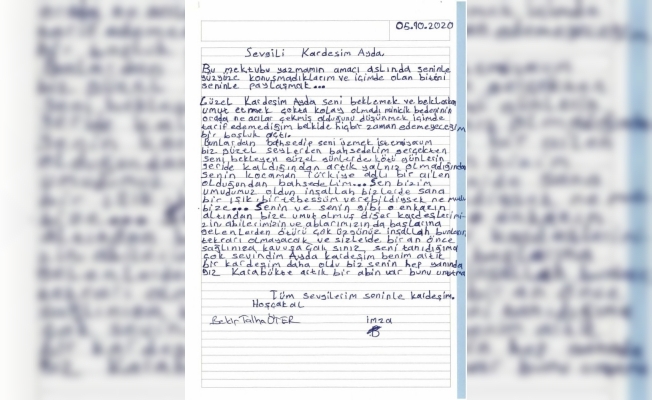 05.10.2020
Sevgili Kardeşim Ayda.
Bu mektubu yazmamın amacı aslında seninle
yüzyüze konuşmadıklarım ve içimde olan bişeni
seninle paylaşmak...
Güzel Kardeşim Ayda seni beklemek ve beklerken
umut etmek çokta kolay olmadı minicik bedeninin
orada ne acılar çekmiş olduğunu düşünmek içimde
tarif edemediğim belkide hiçbir zaman edemeyeceğim
bir boşluk açtı.
Bunlardan bahsedip seni üzmek istemiyorum
biz güzel şeylerden bahsedelim gerçekten
seni bekleyen güzel günlerde kötü günlerin
geride kaldığından artık yalnız olmadığından
senin kocaman Türkiye adlı bir ailen
olduğundan bahsedelim... Sen bizim
umudumuz oldun inşallah bizlerde sana
bir ışık bir tebessüm verebildiysek ne mutlu
bize... Senin ve senin gibi o enkazın
altından bize umut olmuş diğer kardeşlerimi-
zin abilerimizin ve ablarımızın da başlarına
gelenlerden ötürü çok üzgünüz inşallah bunların
tekrarı olmayacak ve sizlerde bir an önce
sağlınıza kavuşacak sınız seni tanıdığıma
çok sevindim Ayda kardeşim benim artık
bir kardeşim daha oldu biz senin hep yanında
biz Karabükte artık bir abin var bunu unutma
Tüm sevgilerim seninle kardeşim.
Hoşçakal
Bekir Talha ÖTER
imza